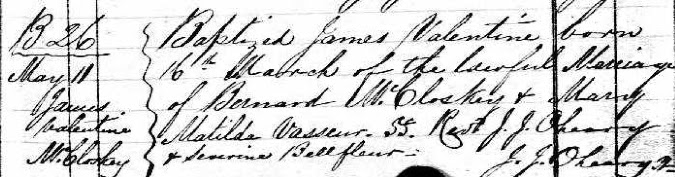 B 26
May 11
James
Valentine
McCloskey
Baptized James Valentine born
16th March of the lawful Marriage
of Bernard McCloskey & Mary
Matilde Vasseur. SS. Revd J. J. Oheary
& Severine Bellfleur
J. J. Oheary